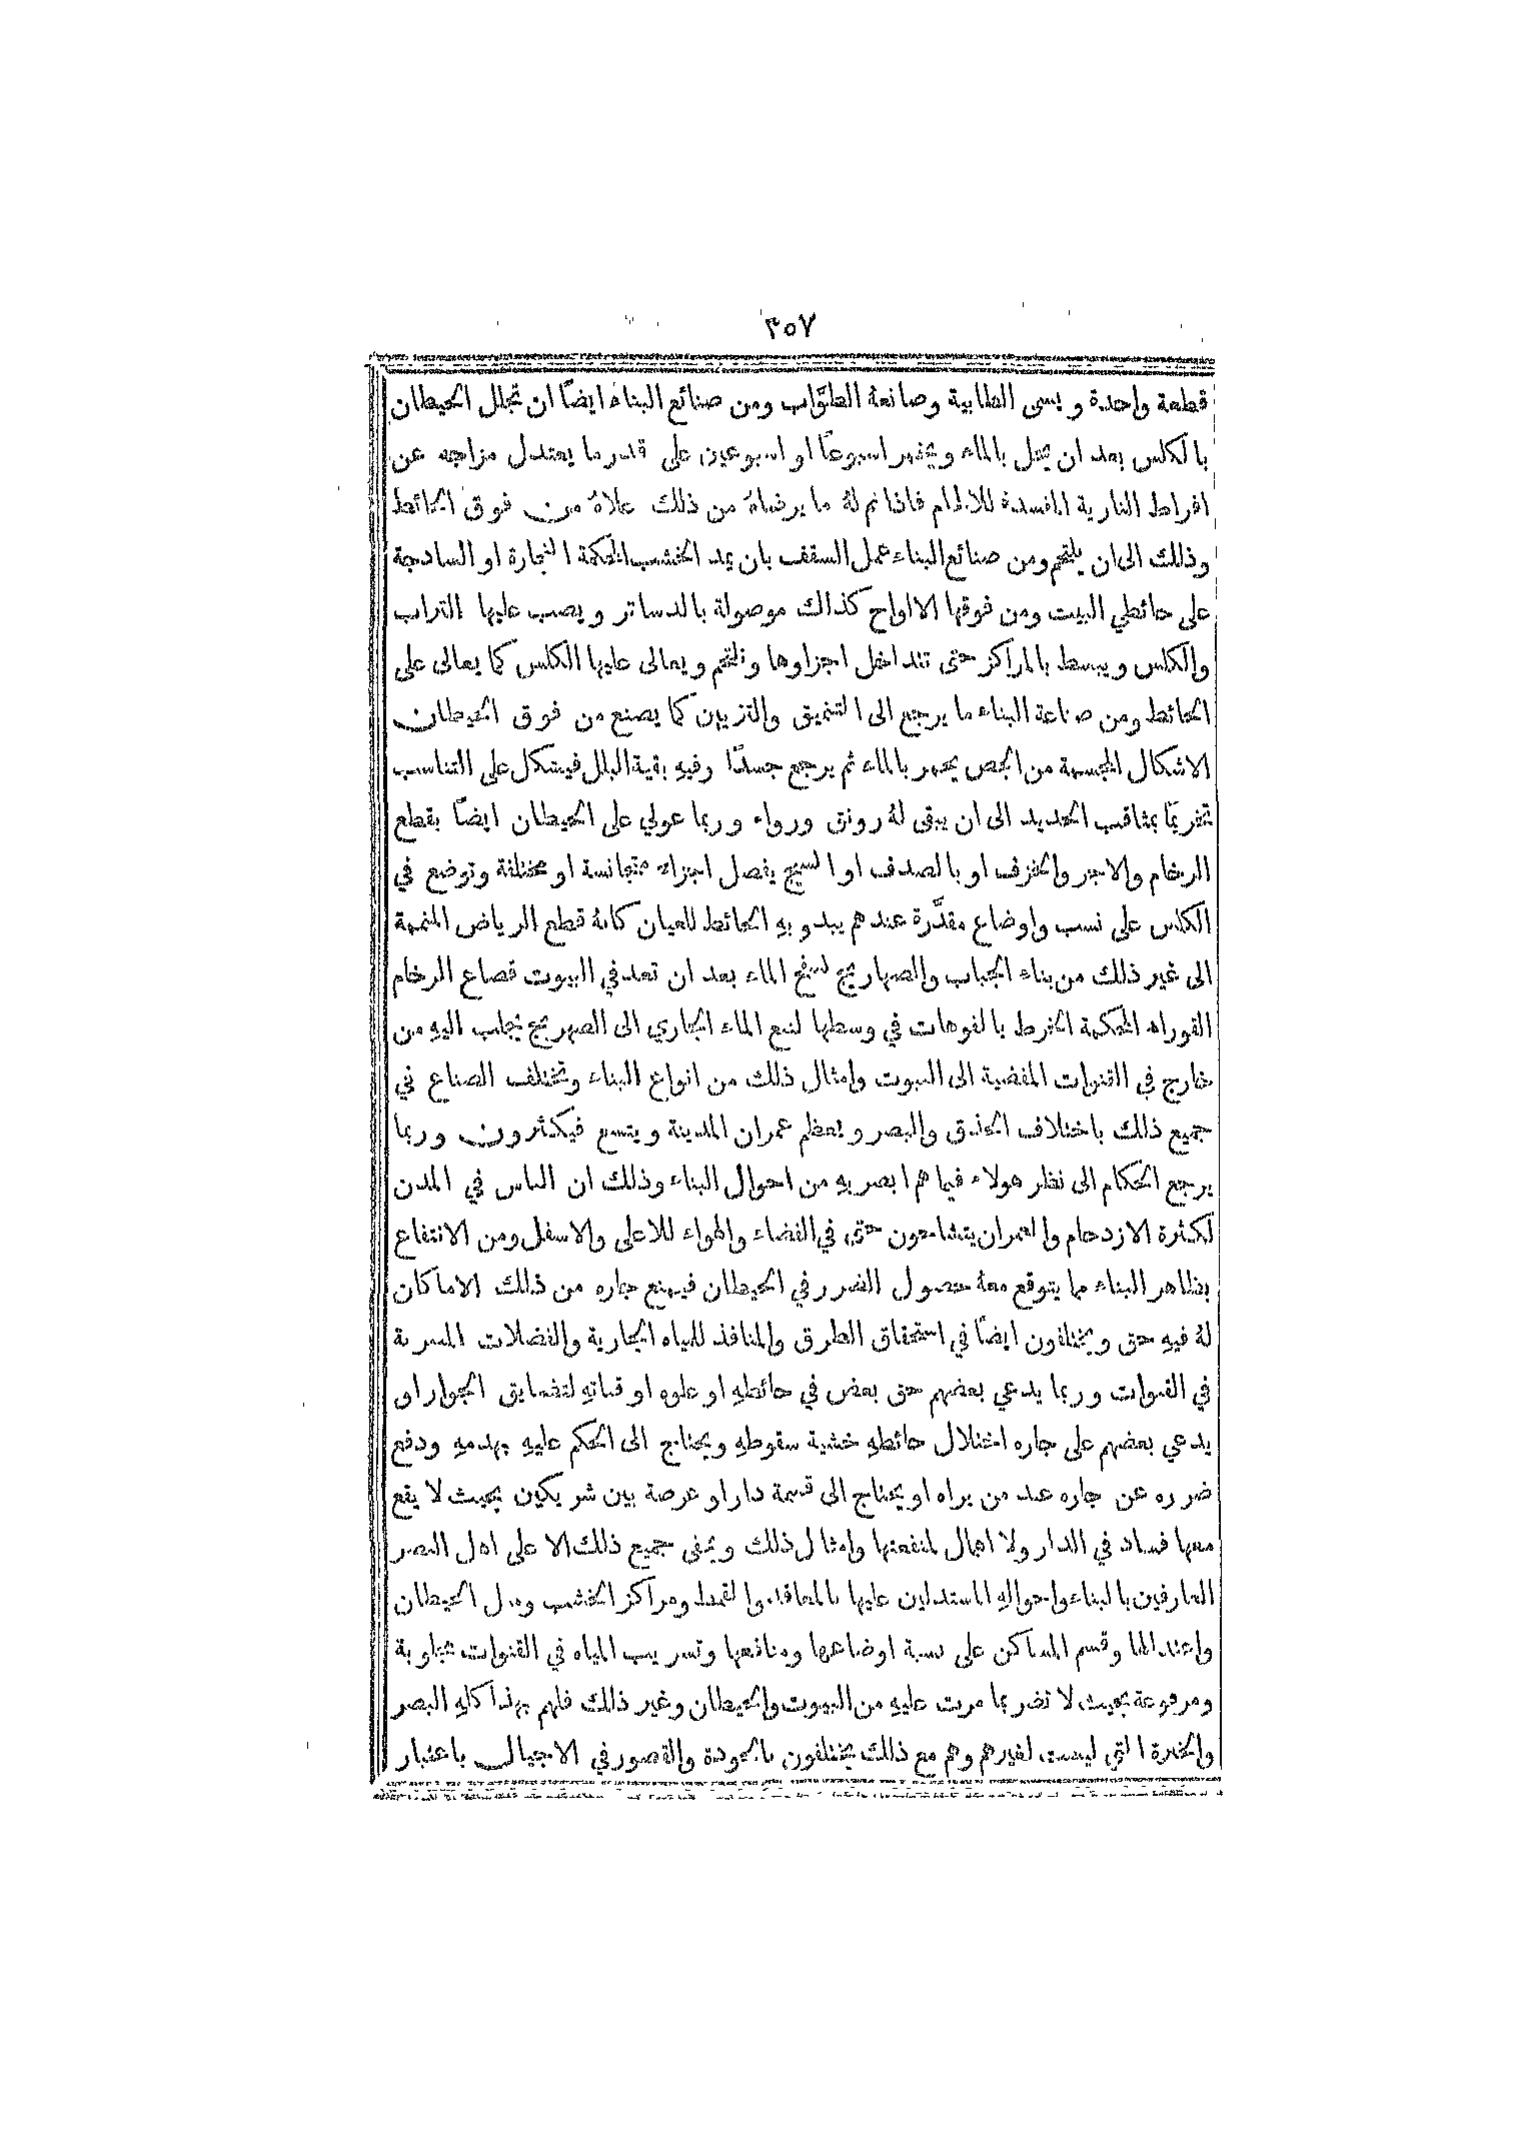 ٣٥٧
قطعة واحدة ويسمى الطابية وصانعهُ الطوَّاب ومن صنائع البناء ايضًا ان تجلل الحيطان
بالكلس بعد ان يحل بالماء ويخمر اسبوعًا او اسبوعين على قدر ما يعتدل مزاجه عن
افراط النارية المفسدة للالحام فاذا تم لهُ ما يرضاهُ من ذلك علاهُ من فوق الحائط
وذلك الى ان يلتحم ومن صنائع البناء عمل السقف بان يمد الخشب المحكمة النجارة او الساذجة
على حائطي البيت ومن فوقها الالواح كذلك موصولة بالدساتر ويصب عليها التراب
والكلس ويبسط بالمراكز حتى تتداخل اجزاوها وتلتحم ويعالى عليها الكلس كما يعالى على
الحائط ومن صناعة البناء ما يرجع الى التنميق والتزيين كما يصنع من فوق الحيطان
الاشكال المجسمة من الجص يخمر بالماء ثم يرجع جسدًا وفيهِ بقية البلل فيشكل على التناسب
تخريمًا بمثاقب الحديد الى ان يبقى لهُ رونق ورواء وربما عولي على الحيطان ايضًا بقطع
الرخام والاجر والخزف او بالصدف او السبج يفصل اجزاء متجانسة او مختلفة وتوضع في
الكلس على نسب واوضاع مقدَّرة عندهم يبدو بهِ الحائط للعيان كانهُ قطع الرياض المنمنمة
الى غير ذلك من بناء الجباب والصهاريج لسفح الماء بعد ان تعد في البيوت قصاع الرخام
القوراء المحكمة الخرط بالفوهات في وسطها لنبع الماء الجاري الى الصهريج يجلب اليهِ من
خارج في القنوات المفضية الى البيوت وامثال ذلك من انواع البناء وتختلف الصناع في
جميع ذلك باختلاف الحذق والبصر ويعظم عمران المدينة ويتسع فيكثرون وربما
يرجع الحكام الى نظر هولاء فيما هم ابصر بهِ من احوال البناء وذلك ان الناس في المدن
لكثرة الازدحام والعمران يتشاحون حتى في الفضاء والهواء للاعلى والاسفل ومن الانتفاع
بظاهر البناء مما يتوقع معهُ حصول الضرر في الحيطان فيمنع جاره من ذلك الا ما كان
لهُ فيهِ حق ويختلفون ايضًا في استحقاق الطرق والمنافذ للمياه الجارية والفضلات المسربة
في القنوات وربما يدعي بعضهم حق بعض في حائطهِ او علوه او قناتهِ لتضايق الجوار او
يدعي بعضهم على جاره اختلال حائطهِ خشية سقوطهِ ويحتاج الى الحكم عليهِ بهدمهِ ودفع
ضرره عن جاره عند من يراه او يحتاج الى قسمة دار او عرصة بين شريكين بحيث لا يقع
معها فساد في الدار ولا اهمال لمنفعتها وامثال ذلك ويخفى جميع ذلك الا على اهل البصر
العارفين بالبناء واحوالهِ المستدلين عليها بالمعاقد والقمط ومراكز الخشب وميل الحيطان
واعتدالها وقسم المساكن على نسبة اوضاعها ومنافعها وتسريب المياه في القنوات مجلوبة
ومرفوعة بحيث لا تضر بما مرت عليهِ من البيوت والحيطان وغير ذلك فلهم بهذا كلهِ البصر
والخبرة التي ليست لغيرهم وهم مع ذلك يختلفون بالجودة والقصور في الاجيال باعتبار